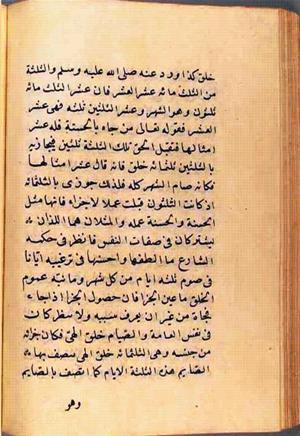 خلق كذا ورد عنه صلى الله عليه وسلم والثلثة
من الثلث مائة عشر العشر فان عشر الثلث مائة
ثلثون وهو الشهر وعشر الثلثين ثلثة فهى عشر
العشر فقوله تعالى من جاء بالحسنة فله عشر
امثالها فتقبل الحق تلك الثلثة الثلثين فيجازيه
بالثلثين ثلثمائة خلق فانه قال عشر امثالها
فكانه صام الشهر كله فلذلك جوزى بالثلثمائة
اذ كانت الثلثون قبلت عملا لا جزاء فانها مثل
الحسنة والحسنة عمله والمثلان هما اللذان
يشتركان فى صفات النفس فانظر فى حكمة
الشارع ما الطفها واحسنها فى ترغيبه ايانا
فى صوم ثلثة ايام من كل شهر وما نبه عموم
الخلق ما عين الجزا فان حصول الجزا اذا جاء
فجاة من غير ان يعرف سببه ولا ينتظر كان
فى نفس العامة والصيام خلق الهى فكان جزائه
من جنسه وهى الثلثمائة خلق الهى متصف بها
الصايم هذه الثلثة الايام كما اتصف بالصايم
وهو